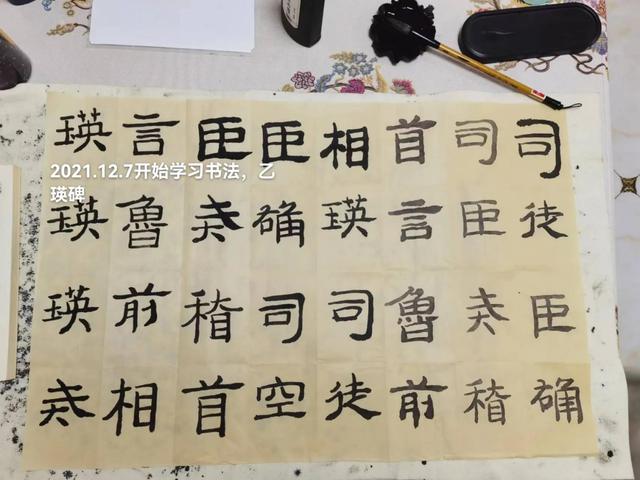 2021.12.7开始学习书法，乙
瑛碑
司徒臣确
司臣戒稽
首言魯前
相瑛司徒
臣确司空
臣戒稽首
言魯前相
瑛瑛瑛戒